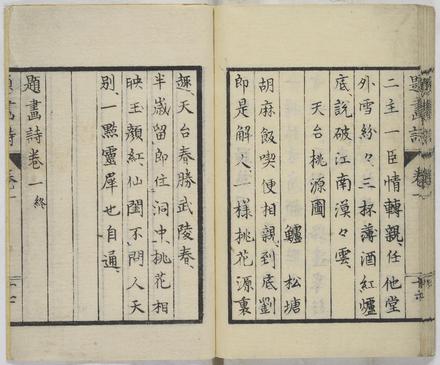 題畫詩 卷一
二主一臣情轉親、任他堂
外雪紛々、三杯薄酒紅爐
底、說破江南漠々雲、
天台桃源圖
鱸 松塘
胡麻飯喫便相親、到底劉
郎是解人、一樣桃花源裏
趣、天台春勝武陵春、
半歲留郎住洞中、桃花相
映玉顏紅、仙閨不問人天
別、一點靈犀也自通、
題畫詩卷一 終
題畫詩 卷一